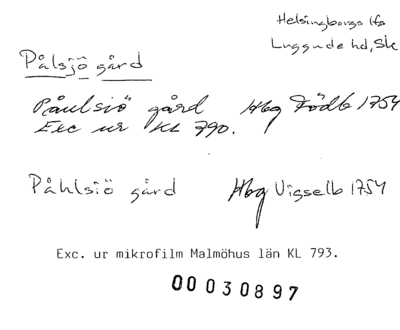 Helsingborgs lfs
Luggude hd, Sk
Pålsjö gård
Påulsiö gård Hbg Födb 1754
Exc ur KL 790.
Påhlsiö gård Hbg Vigselb 1754
Exc. ur mikrofilm Malmöhus län KL 793.
00030897